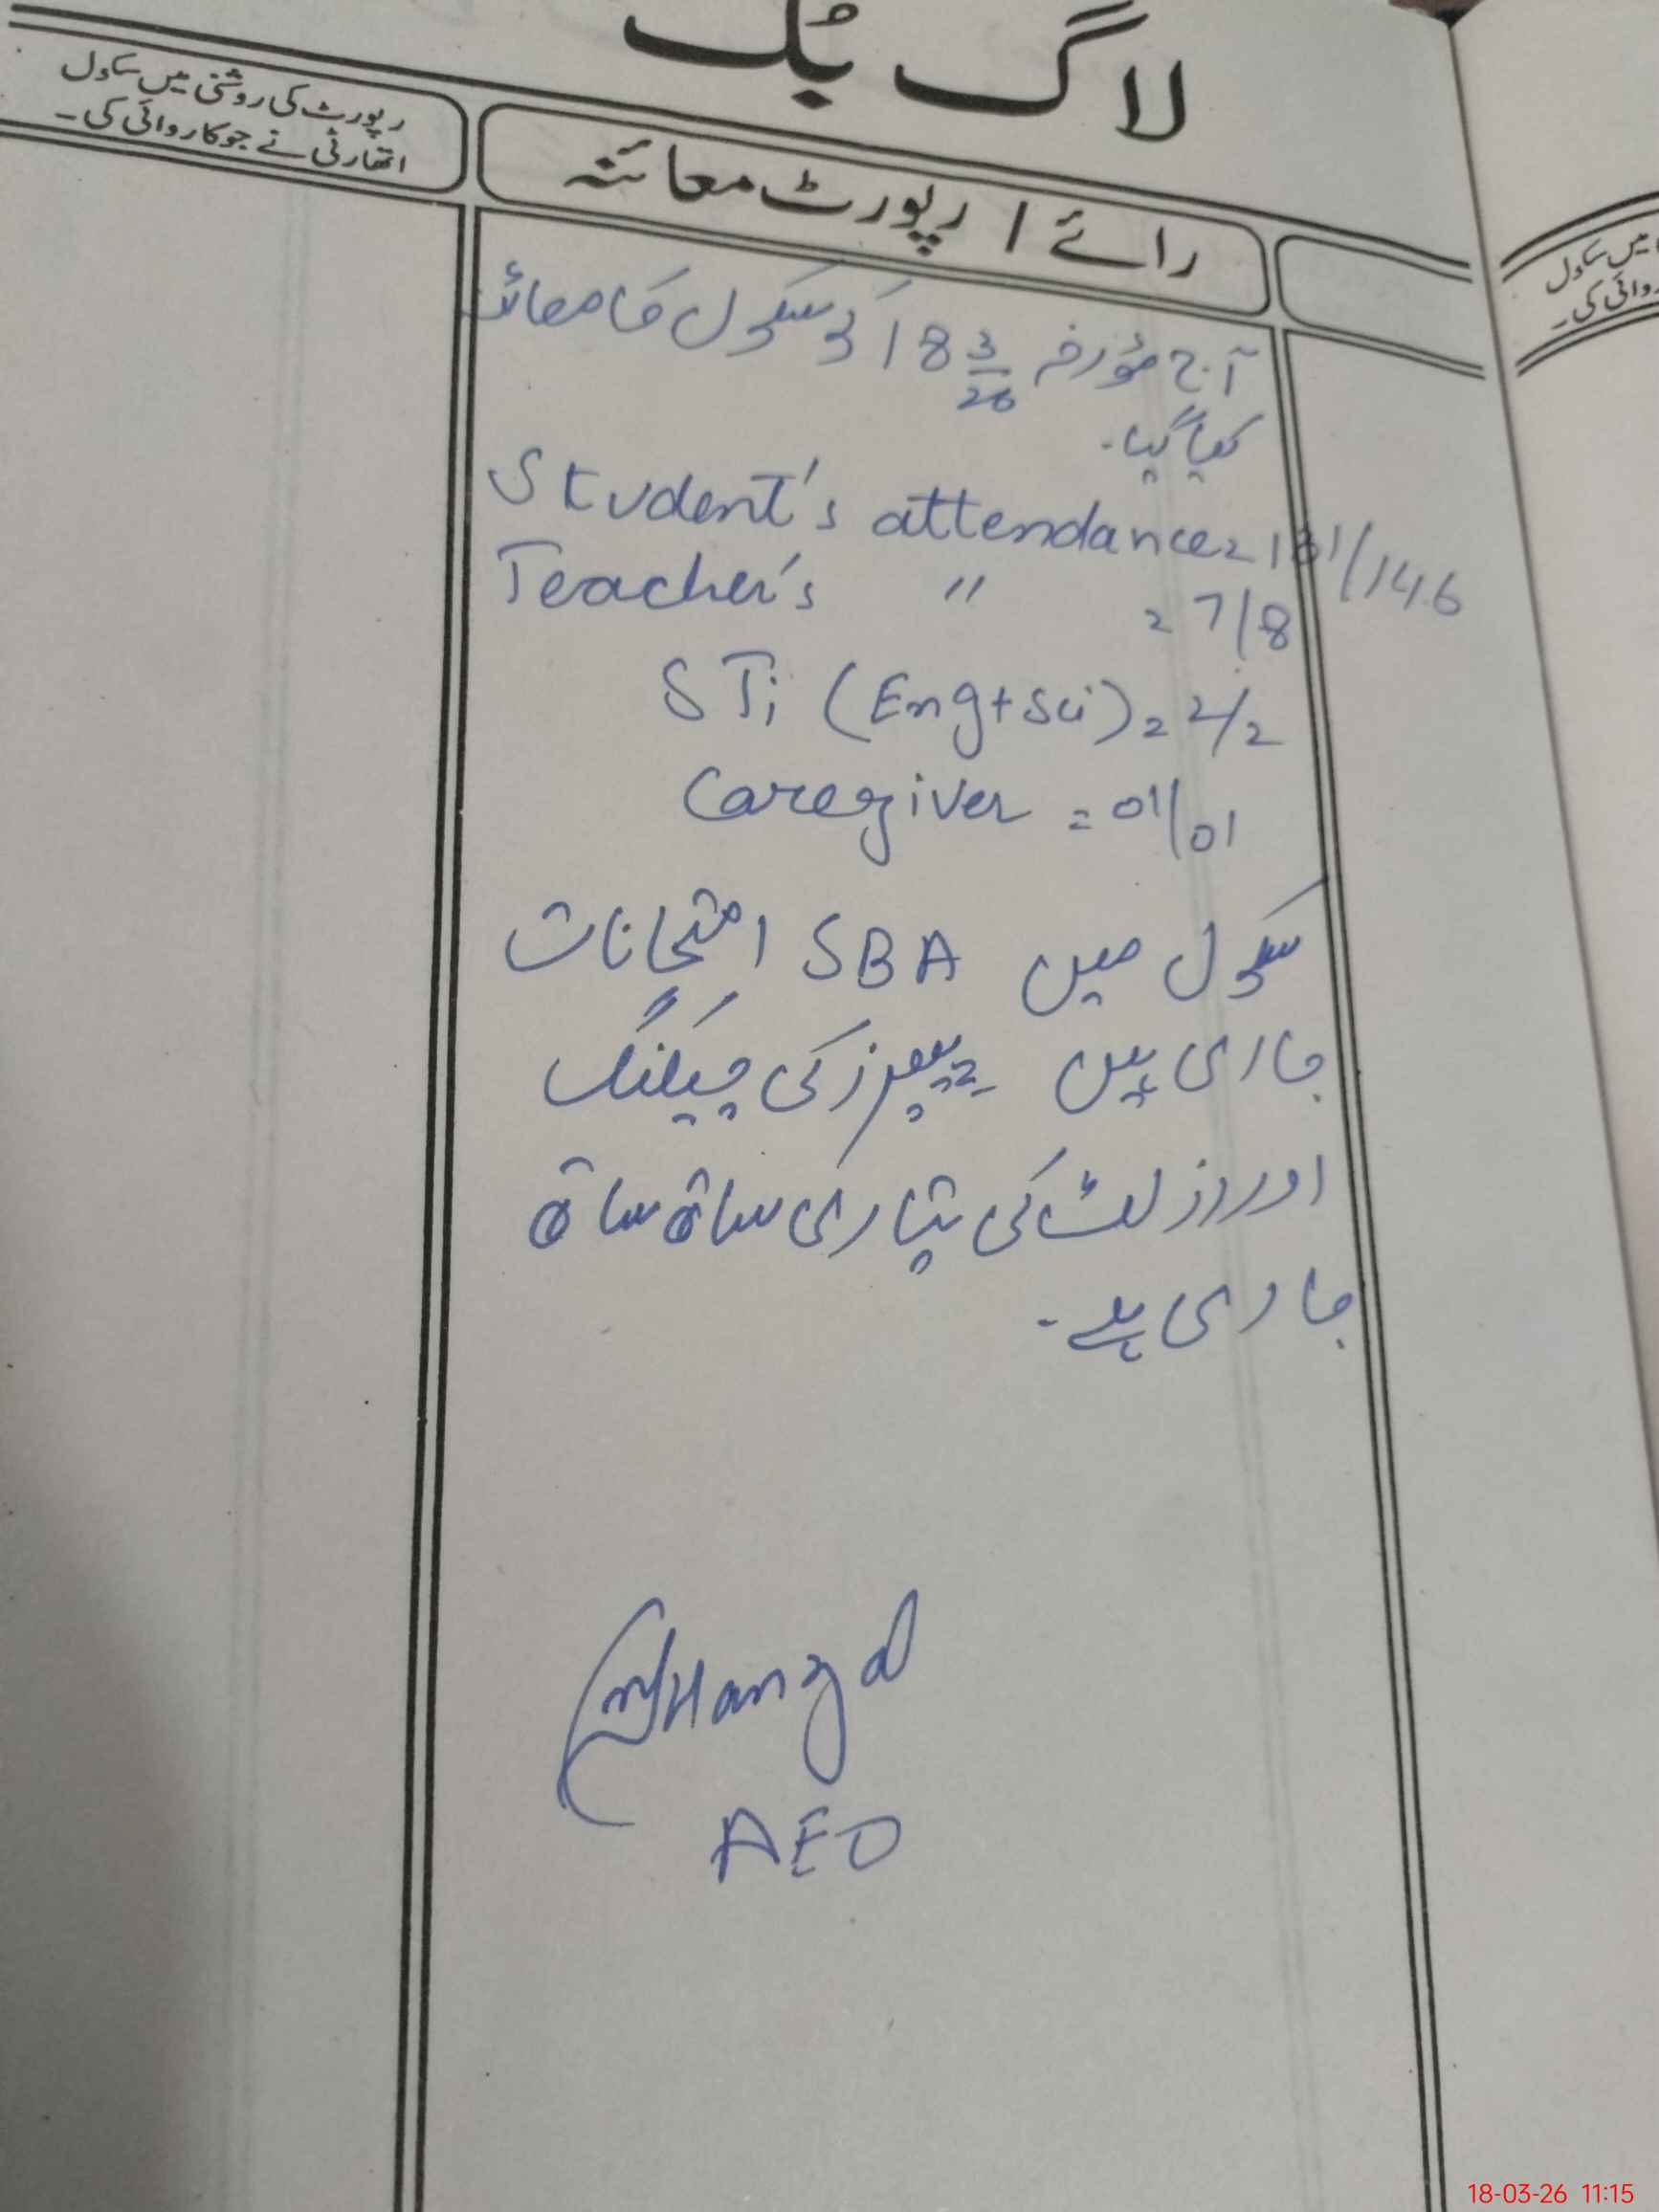 لاگ بُک
رائے / رپورٹ معائنہ
رپورٹ کی روشنی میں سکول
اتھارٹی نے جو کاروائی کی۔
آج مؤرخہ 18 3/26 کو سکول کا معائنہ
کیا گیا۔
Student's attendance = 131/146
Teacher's " = 7/8
STi (Eng+Sci) = 2/2
Caregiver = 01/01
سکول میں SBA امتحانات
جاری ہیں پیپرز کی چیکنگ
اور رزلٹ کی تیاری ساتھ ساتھ
جاری ہے۔
AEO
میں سکول
روائی کی۔
18-03-26 11:15